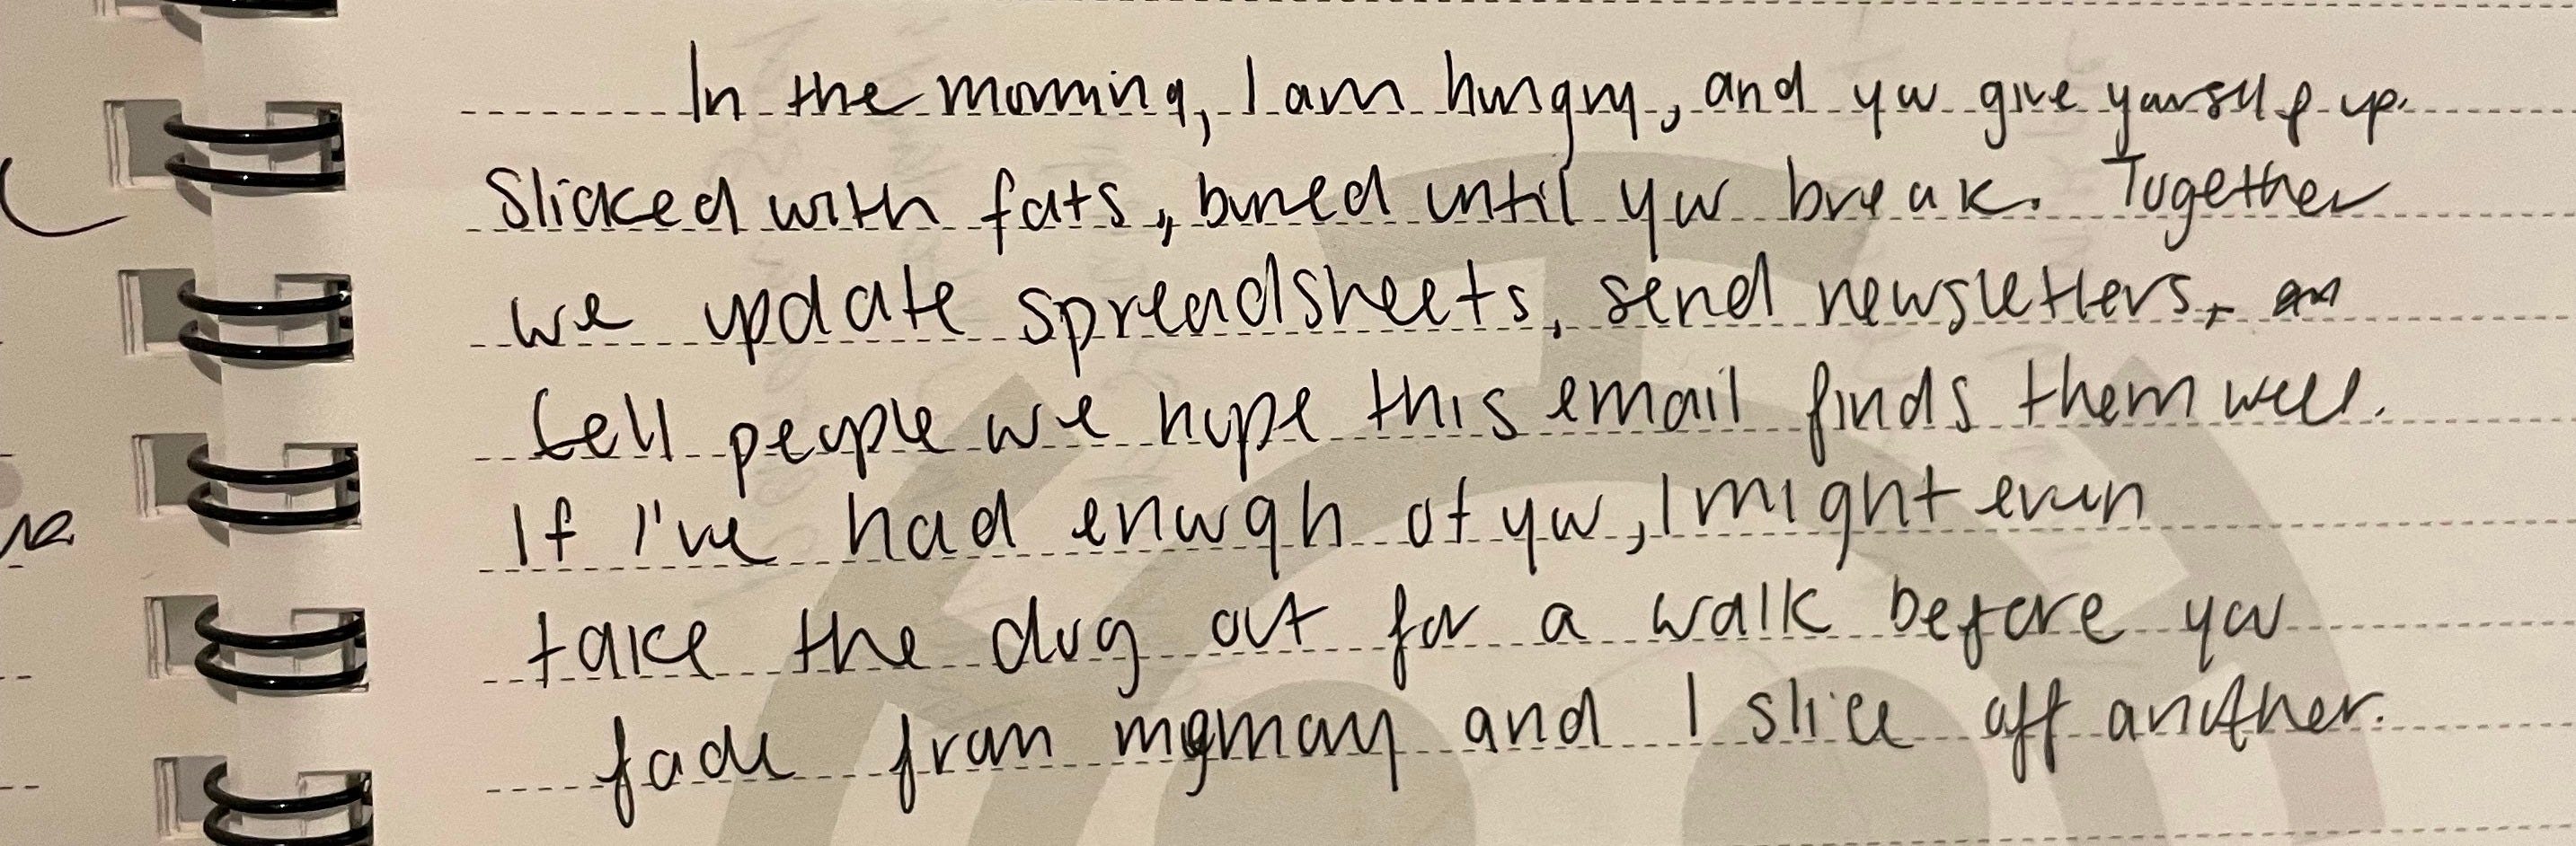 In the morning, I am hungry, and you give yourself up.
Slicked with fats, burned until you break. Together
we update spreadsheets, send newsletters,
tell people we hope this email finds them well.
If I've had enough of you, I might even
take the dog out for a walk before you
fade from memory and I slice off another.